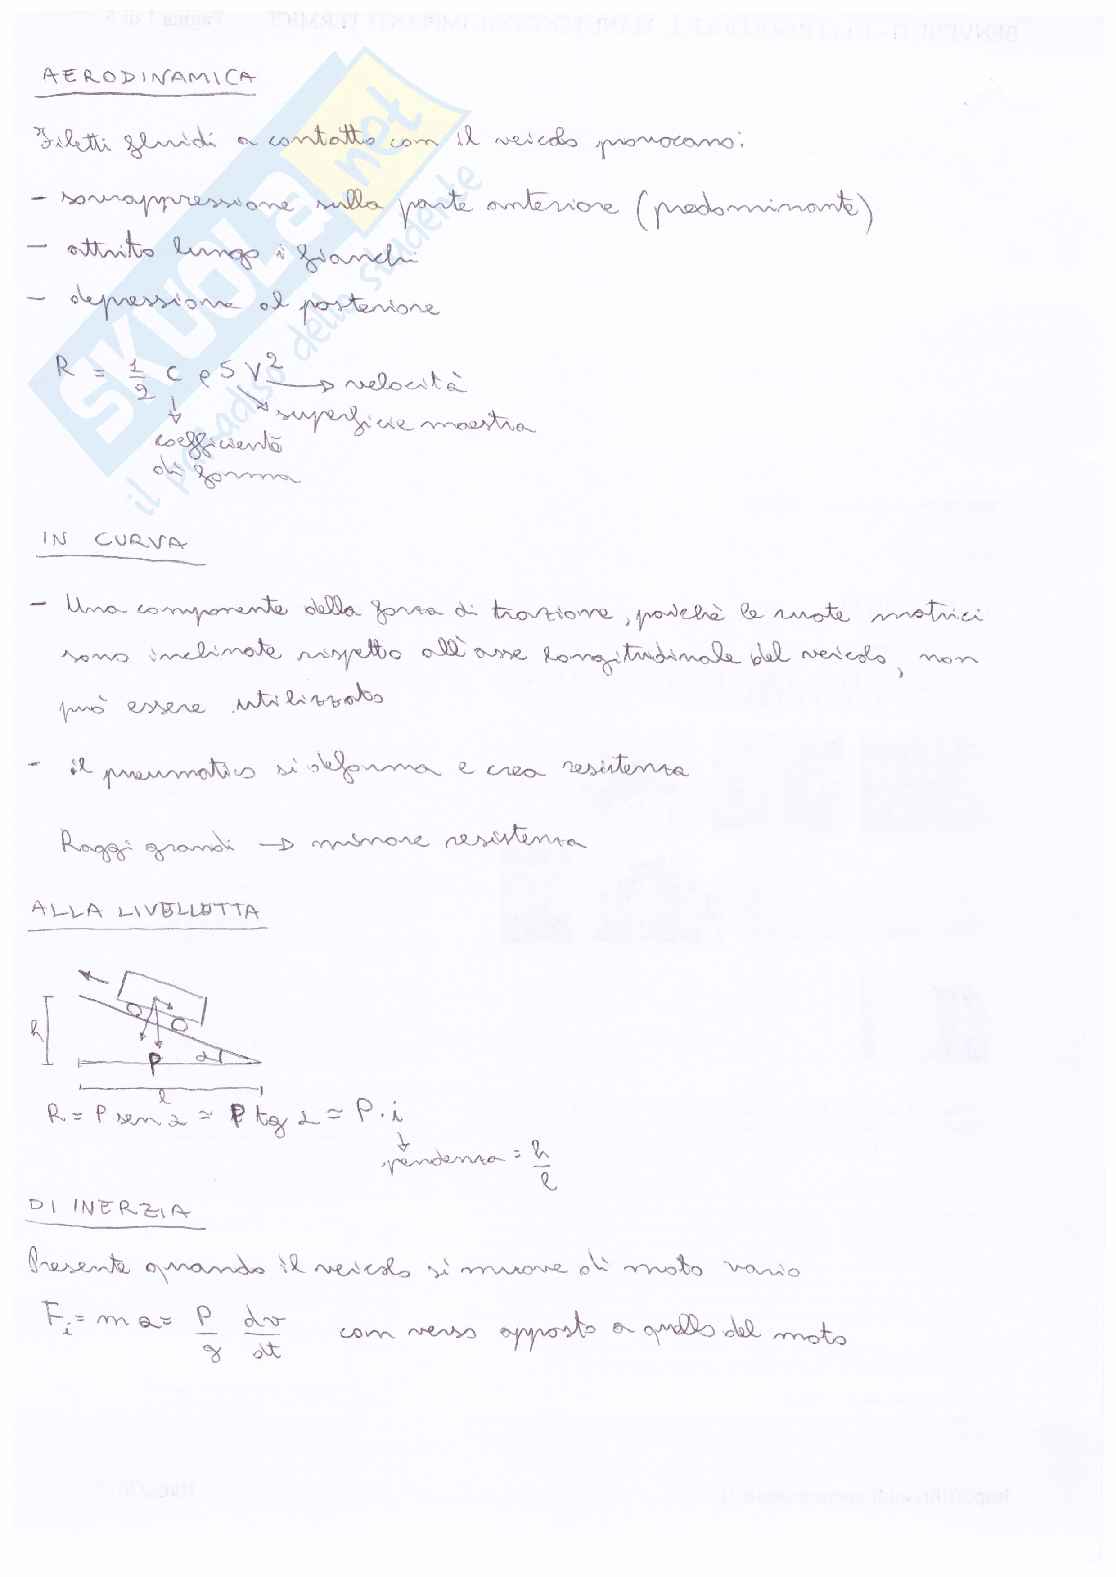 AERODINAMICA
Filetti fluidi a contatto con il veicolo provocano:
- sovrappressione sulla parte anteriore (predominante)
- attrito lungo i fianchi
- depressione al posteriore
R = 1/2 C ρ S V² → velocità
superficie maestra
coefficiente
di forma
IN CURVA
- Una componente della forza di trazione, poichè le ruote motrici
sono inclinate rispetto all'asse longitudinale del veicolo, non
può essere utilizzata
- il pneumatico si deforma e crea resistenza
Raggi grandi → minore resistenza
ALLA LIVELLETTA
h
P
α
l
R = P sen α ≃ P tg α ≃ P · i
pendenza = h/l
DI INERZIA
Presente quando il veicolo si muove di moto vario
Fi = m a = P/g dv/dt con verso opposto a quello del moto
SKUOLA.net
il paradiso dello studente